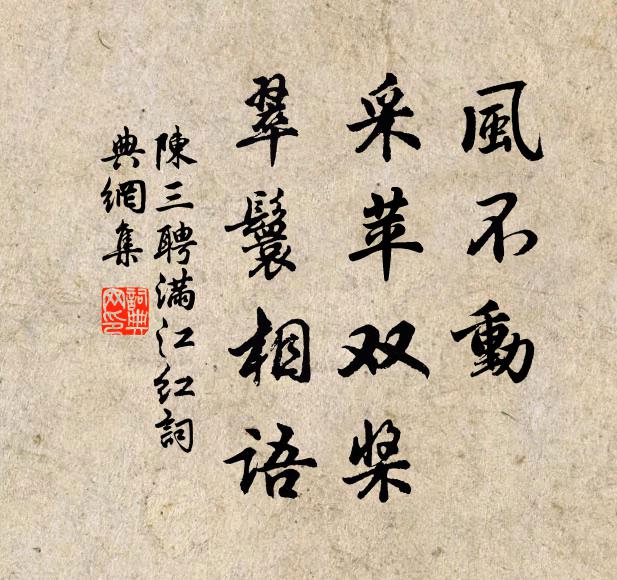 風不動
采苹双槳
翠鬟相语
陳三聘滿江红詞
典網集
詞典网印